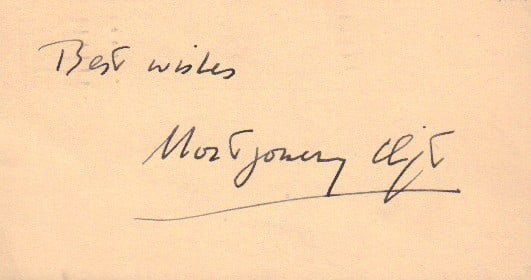 Best wishes
Montgomery Clift